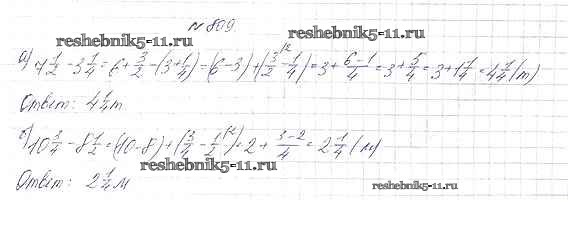 № 809.
reshebnik5-11.ru
reshebnik5-11.ru
а) 7 1/2 - 3 1/4 = 6 + 3/2 - (3 + 1/4) = (6 - 3) + (3/2 - 1/4) = 3 + (6 - 1)/4 = 3 + 5/4 = 3 + 1 1/4 = 4 1/4 (т)
Ответ: 4 1/4 т.
б) 10 3/4 - 8 1/2 = (10 - 8) + (3/4 - 1/2) = 2 + (3 - 2)/4 = 2 1/4 (м)
reshebnik5-11.ru
Ответ: 2 1/4 м
reshebnik5-11.ru